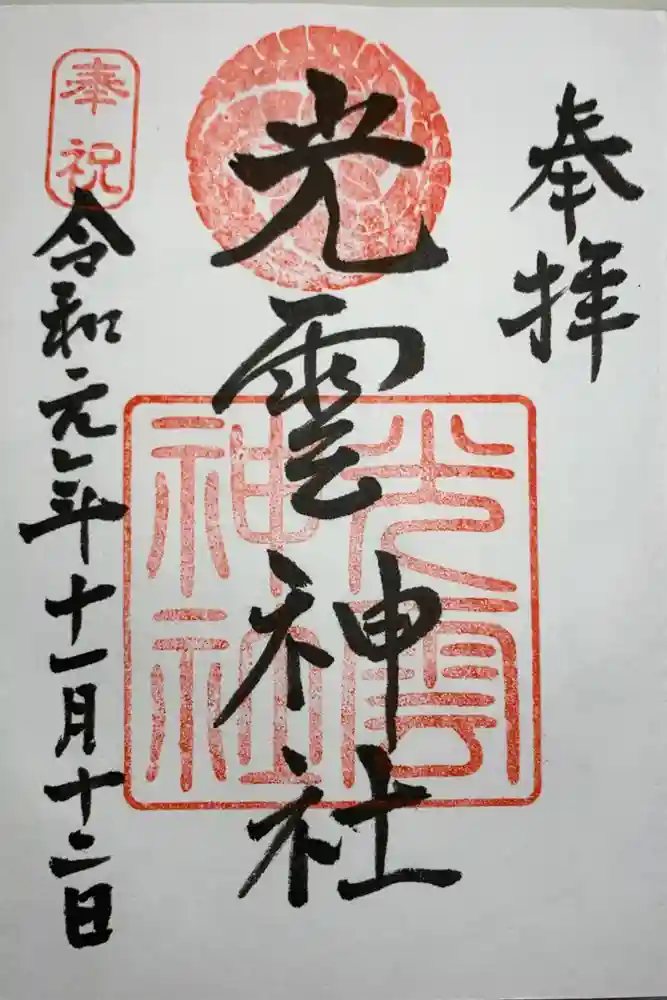 奉拝
光雲神社
光雲神社
奉祝
令和元年十一月十二日